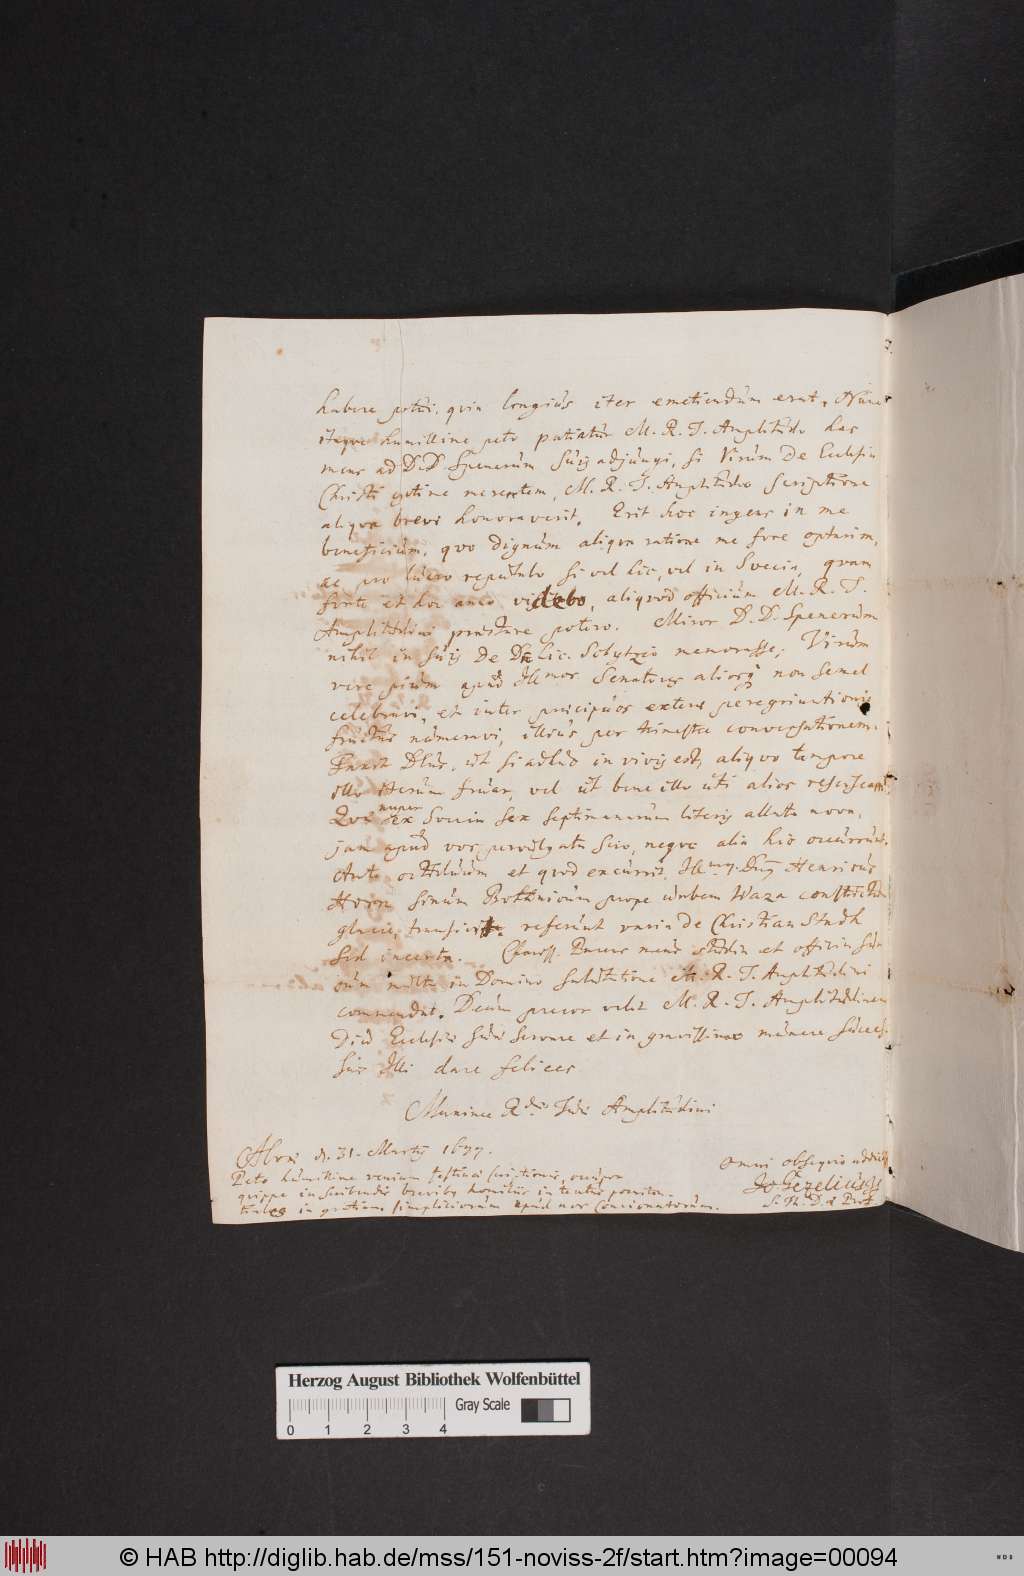 habere potui, quia longius iter emetiendum erat. Nunc
itaque humillime peto patiatur M. R. T. Amplitudo has
meas ad D. D. Spenerum suis adjungi, si Virum de Ecclesia
Christi optime merentem, M. R. T. Amplitudo scriptione
aliqva brevi honoraverit. Erit hoc ingens in me
beneficium, qvo dignum aliqva ratione me fore optarim,
ac pro lucro reputabo si vel hic, vel in Svecia, qvam
forte et hoc anno videbo, aliqvod officium M. R. T.
Amplitudini præstare potero. Miror D. D. Spenerum
nihil in suis de Dn Lic. Schytzio memorasse; Virum
vere pium apud Illmos Senatores aliosq; non semel
celebravi, et inter præcipuos exteræ peregrinationis
fructus numeravi, illius per trimestre conversationem.
Faxit Deus, ut si adhuc in vivis est, aliqvo tempore
illo iterum fruar, vel ut bene illo uti alios resciscam.
Qvæ nuper ex Svecia sex septimanarum literis allata nova,
jam apud vos pervulgata scio, neqve alia hic occurrunt.
Ante octiduum et qvod excurrit, Illmus Dns Henricus
Horn sinum Bothnicum prope urbem Waza constrictum
glacie, transiit, referunt varia de Christianstadh
sed incerta. Chariss. Parens meus studia et officia sua
cum multa in Domino salutatione M. R. T. Amplitudini
commendat. Deum precor velit M. R. T. Amplitudinem
Diu Ecclesiæ suæ servare et in gravissimo munere succes-
sus Illi dare felices.
Maximæ Rdæ Tuæ Amplitudini
Aboæ d. 31. Martij 1677.
omni obseqvio addictiss
Jo Gezelius Js
S. Th. D. & Prof
Peto humillime veniam festinæ scriptionis, occupor
qvippe in scribendis brevibq homiliis in textus
in gratiam simpliciorum apud nos Concionatorum.
Herzog August Bibliothek Wolfenbüttel
Gray Scale
0 1 2 3 4
© HAB http://diglib.hab.de/mss/151-noviss-2f/start.htm?image=00094